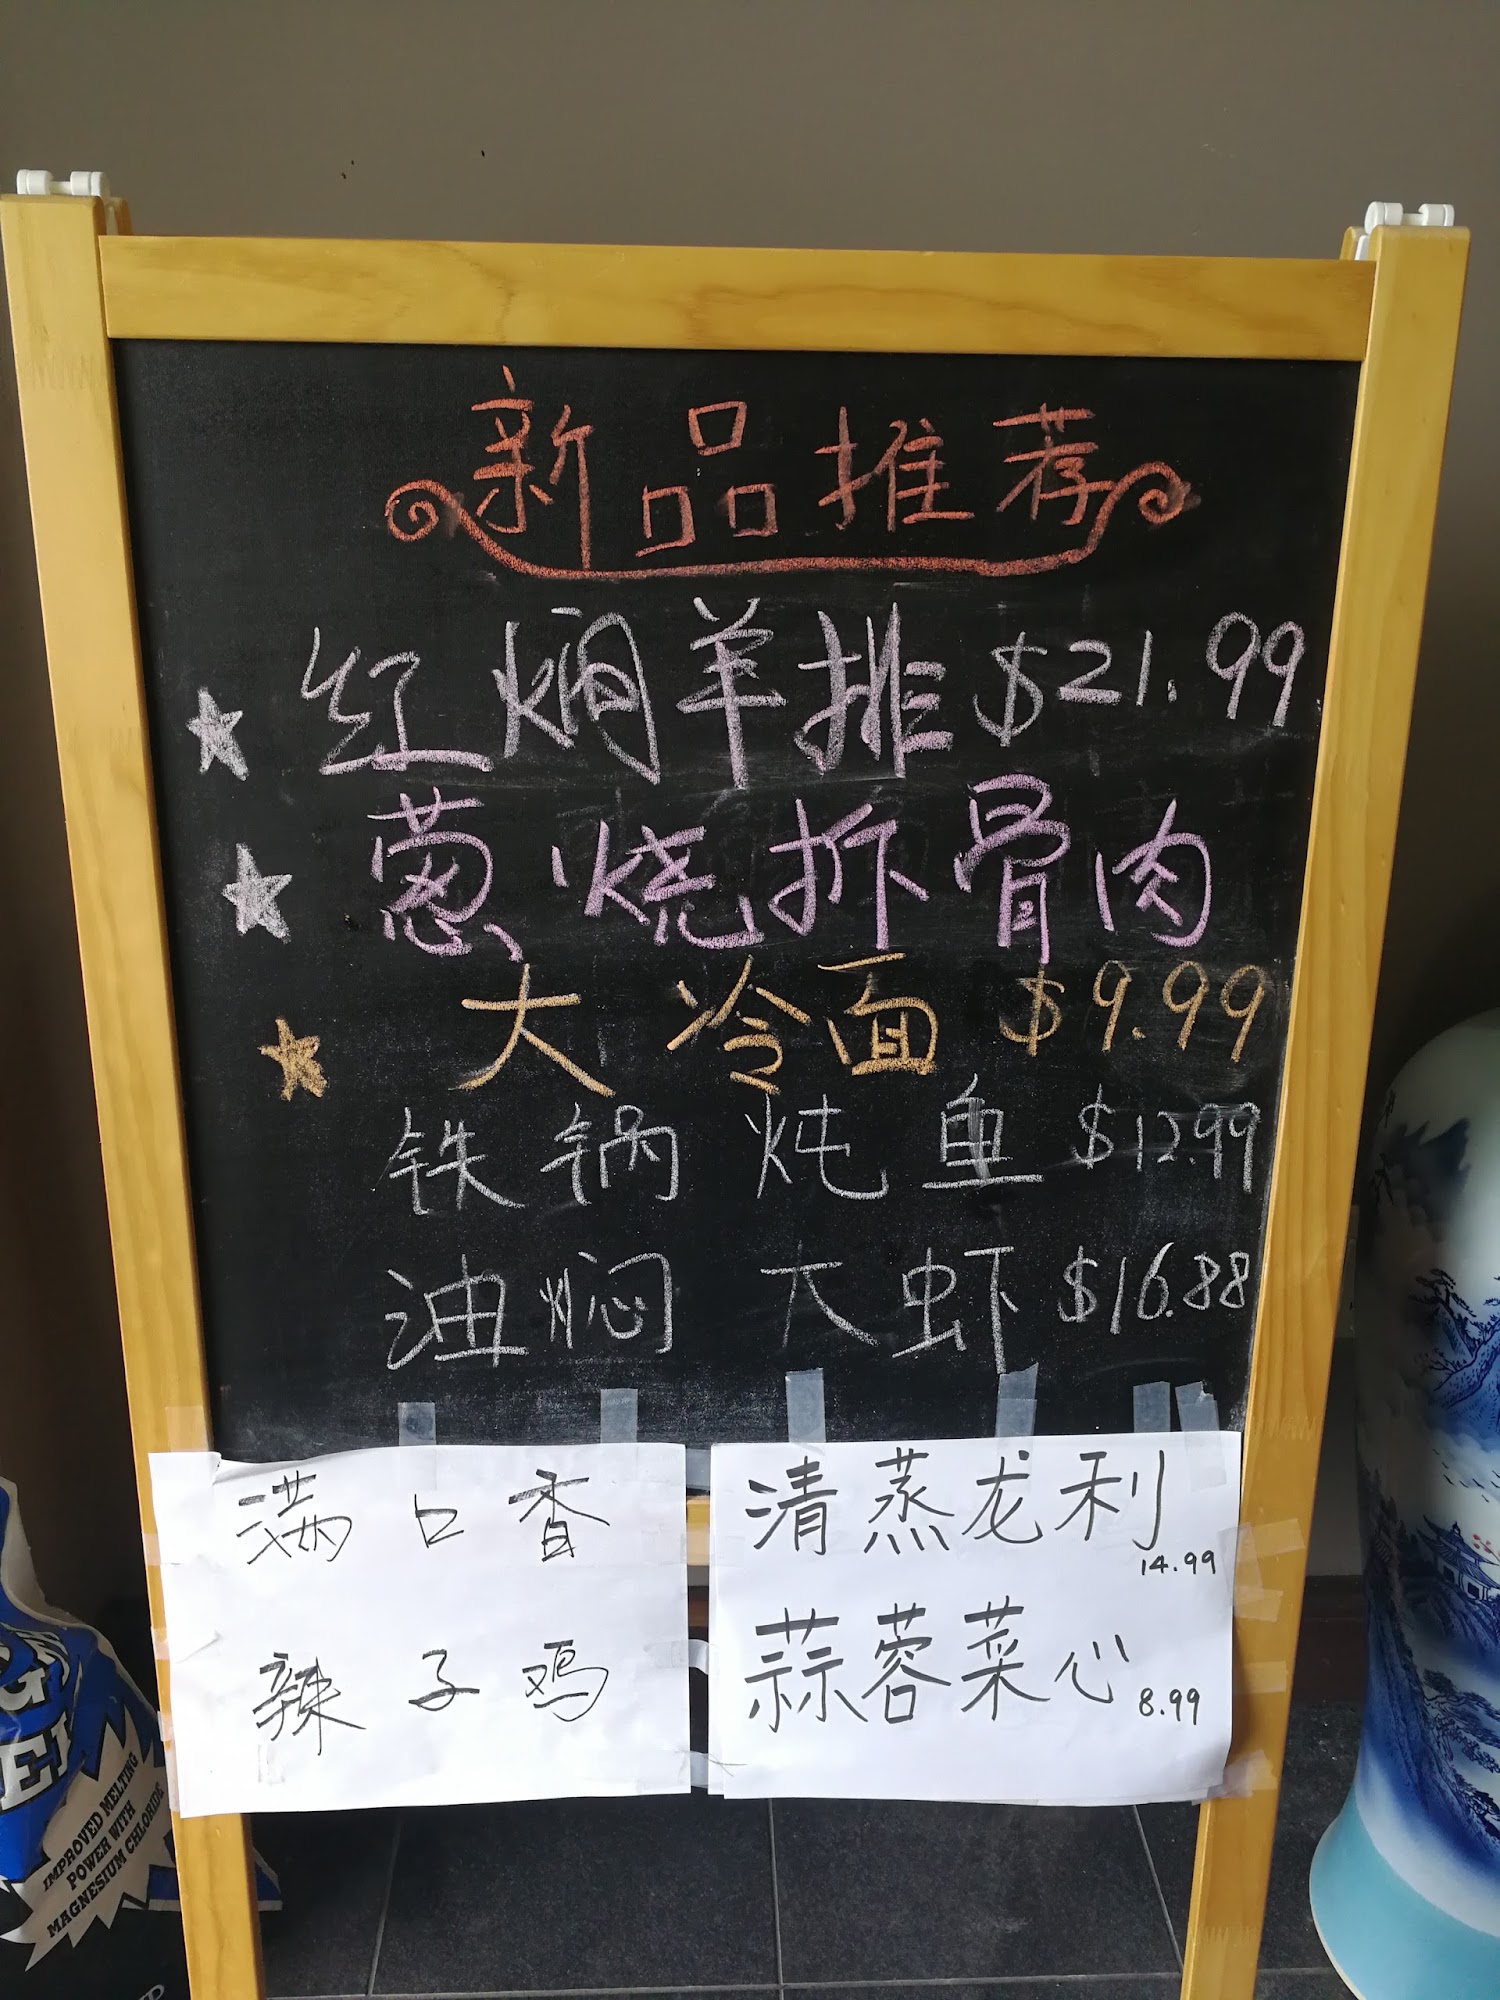 新品推荐
红焖羊排 $21.99
葱烧拆骨肉
大冷面 $9.99
铁锅炖鱼 $12.99
油焖大虾 $16.88
满口香
辣子鸡
清蒸龙利
14.99
蒜蓉菜心
8.99
IMPROVED MELTING
POWER WITH
MAGNESIUM CHLORIDE